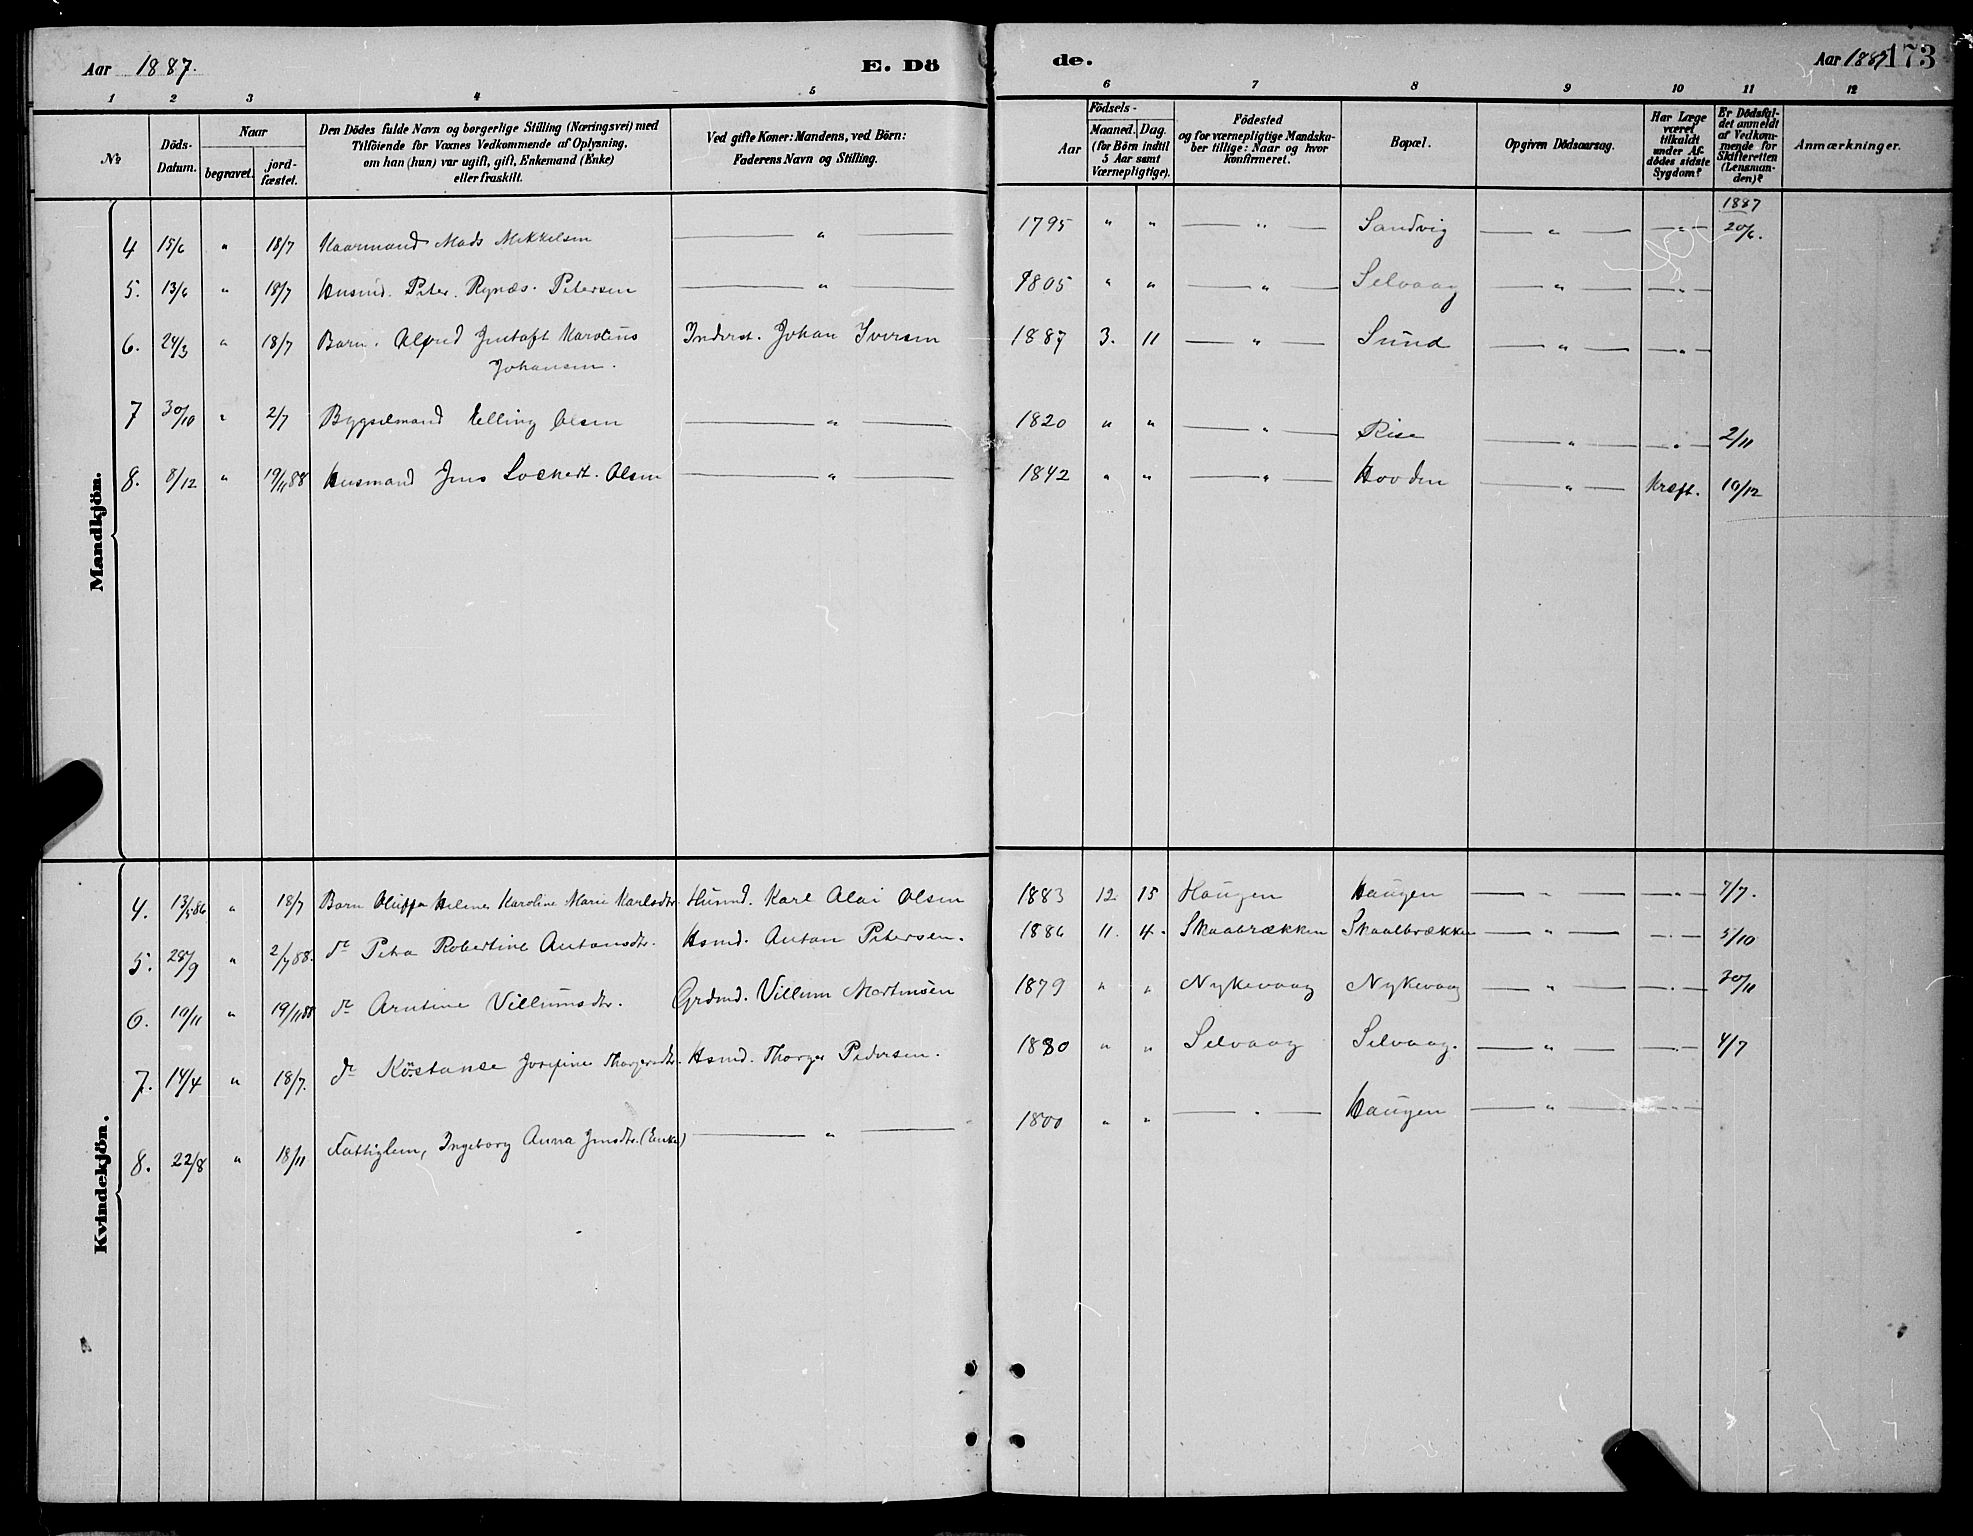 Aar 1887.
E. Dö
de.
Aar 1887
173
1 2 3 4 5 6 7 8 9 10 11 12
No
Döds-Datum.
Naar
begravet.
jord-fæstet.
Den Dödes fulde Navn og borgerlige Stilling (Næringsvei) med
Tilföiende for Voxnes Vedkommende af Oplysning,
om han (hun) var ugift, gift, Enkemand (Enke)
eller fraskilt.
Ved gifte Koner: Mandens, ved Börn:
Faderens Navn og Stilling.
Födsels-
Aar
Maaned. Dag.
(for Börn indtil
5 Aar samt
Værnepligtige).
Födested
og for værnepligtige Mandska-
ber tillige: Naar og hvor
konfirmeret.
Bopæl.
Opgiven Dödsaarsag.
Har Læge
været
tilkaldt
under Af-
dödes sidste
Sygdom?
Er Dödsfal-
det anmeldt
af Vedkom-
mende for
Skifteretten
(Lensman-
den)?
Anmærkninger.
Mandkjön.
1887
4 15/6 " 18/7 Kaarmand Mads Mikkelsen — " — 1795 " " — " — Sandvig — " — — " — 20/6.
5. 13/6 " 18/7 Husmd. Peter Rynæs Petersen — " — 1805 " " — " — Selvaag — " — — " —
6. 24/3 " 18/7 Barn. Alfred Gustaft Karolius Inderst. Johan Iversen 1887 3. 11 — " — Sund — " — — " —
Johansen.
7 30/10 " 2/7 Bygselmand Elling Olsen — " — 1820 " " — " — Rise — " — — " — 2/11
8. 8/12 " 19/11 88 Husmand Jens Lockert Olsen — " — 1842 " " — " — Hovden — " — Kræft. 10/12
Kvindekjön.
4. 13/5 86 " 18/7 Barn Oluffa Helmine Karoline Marie Karlsdtr. Husmd. Karl Olai Olsen 1883 12. 15 Haugen Haugen — " — — " — 7/7.
5. 28/9 " 2/7 88. do Petra Robertine Antonsdtr. Hsmd. Anton Petersen. 1886 11. 4. Skaabrækken Skaalbrækken — " — — " — 5/10
6. 19/11 " 19/11 88 do Arntine Villumsdtr. Grdmd. Villum Martinsen 1879 " " Nykevaag Nykevaag — " — — " — 30/11
7. 14/4 " 18/7. do Köstanse Josefine Thorgersdtr. Hsmd. Thorger Pedersen. 1880 " " Selvaag Selvaag. — " — — " — 4/7
8. 22/8 " 18/11 Fattiglem, Ingeborg Anna Jensdtr. (Enke) — " — 1800 " " — " — Haugen — " — — " —